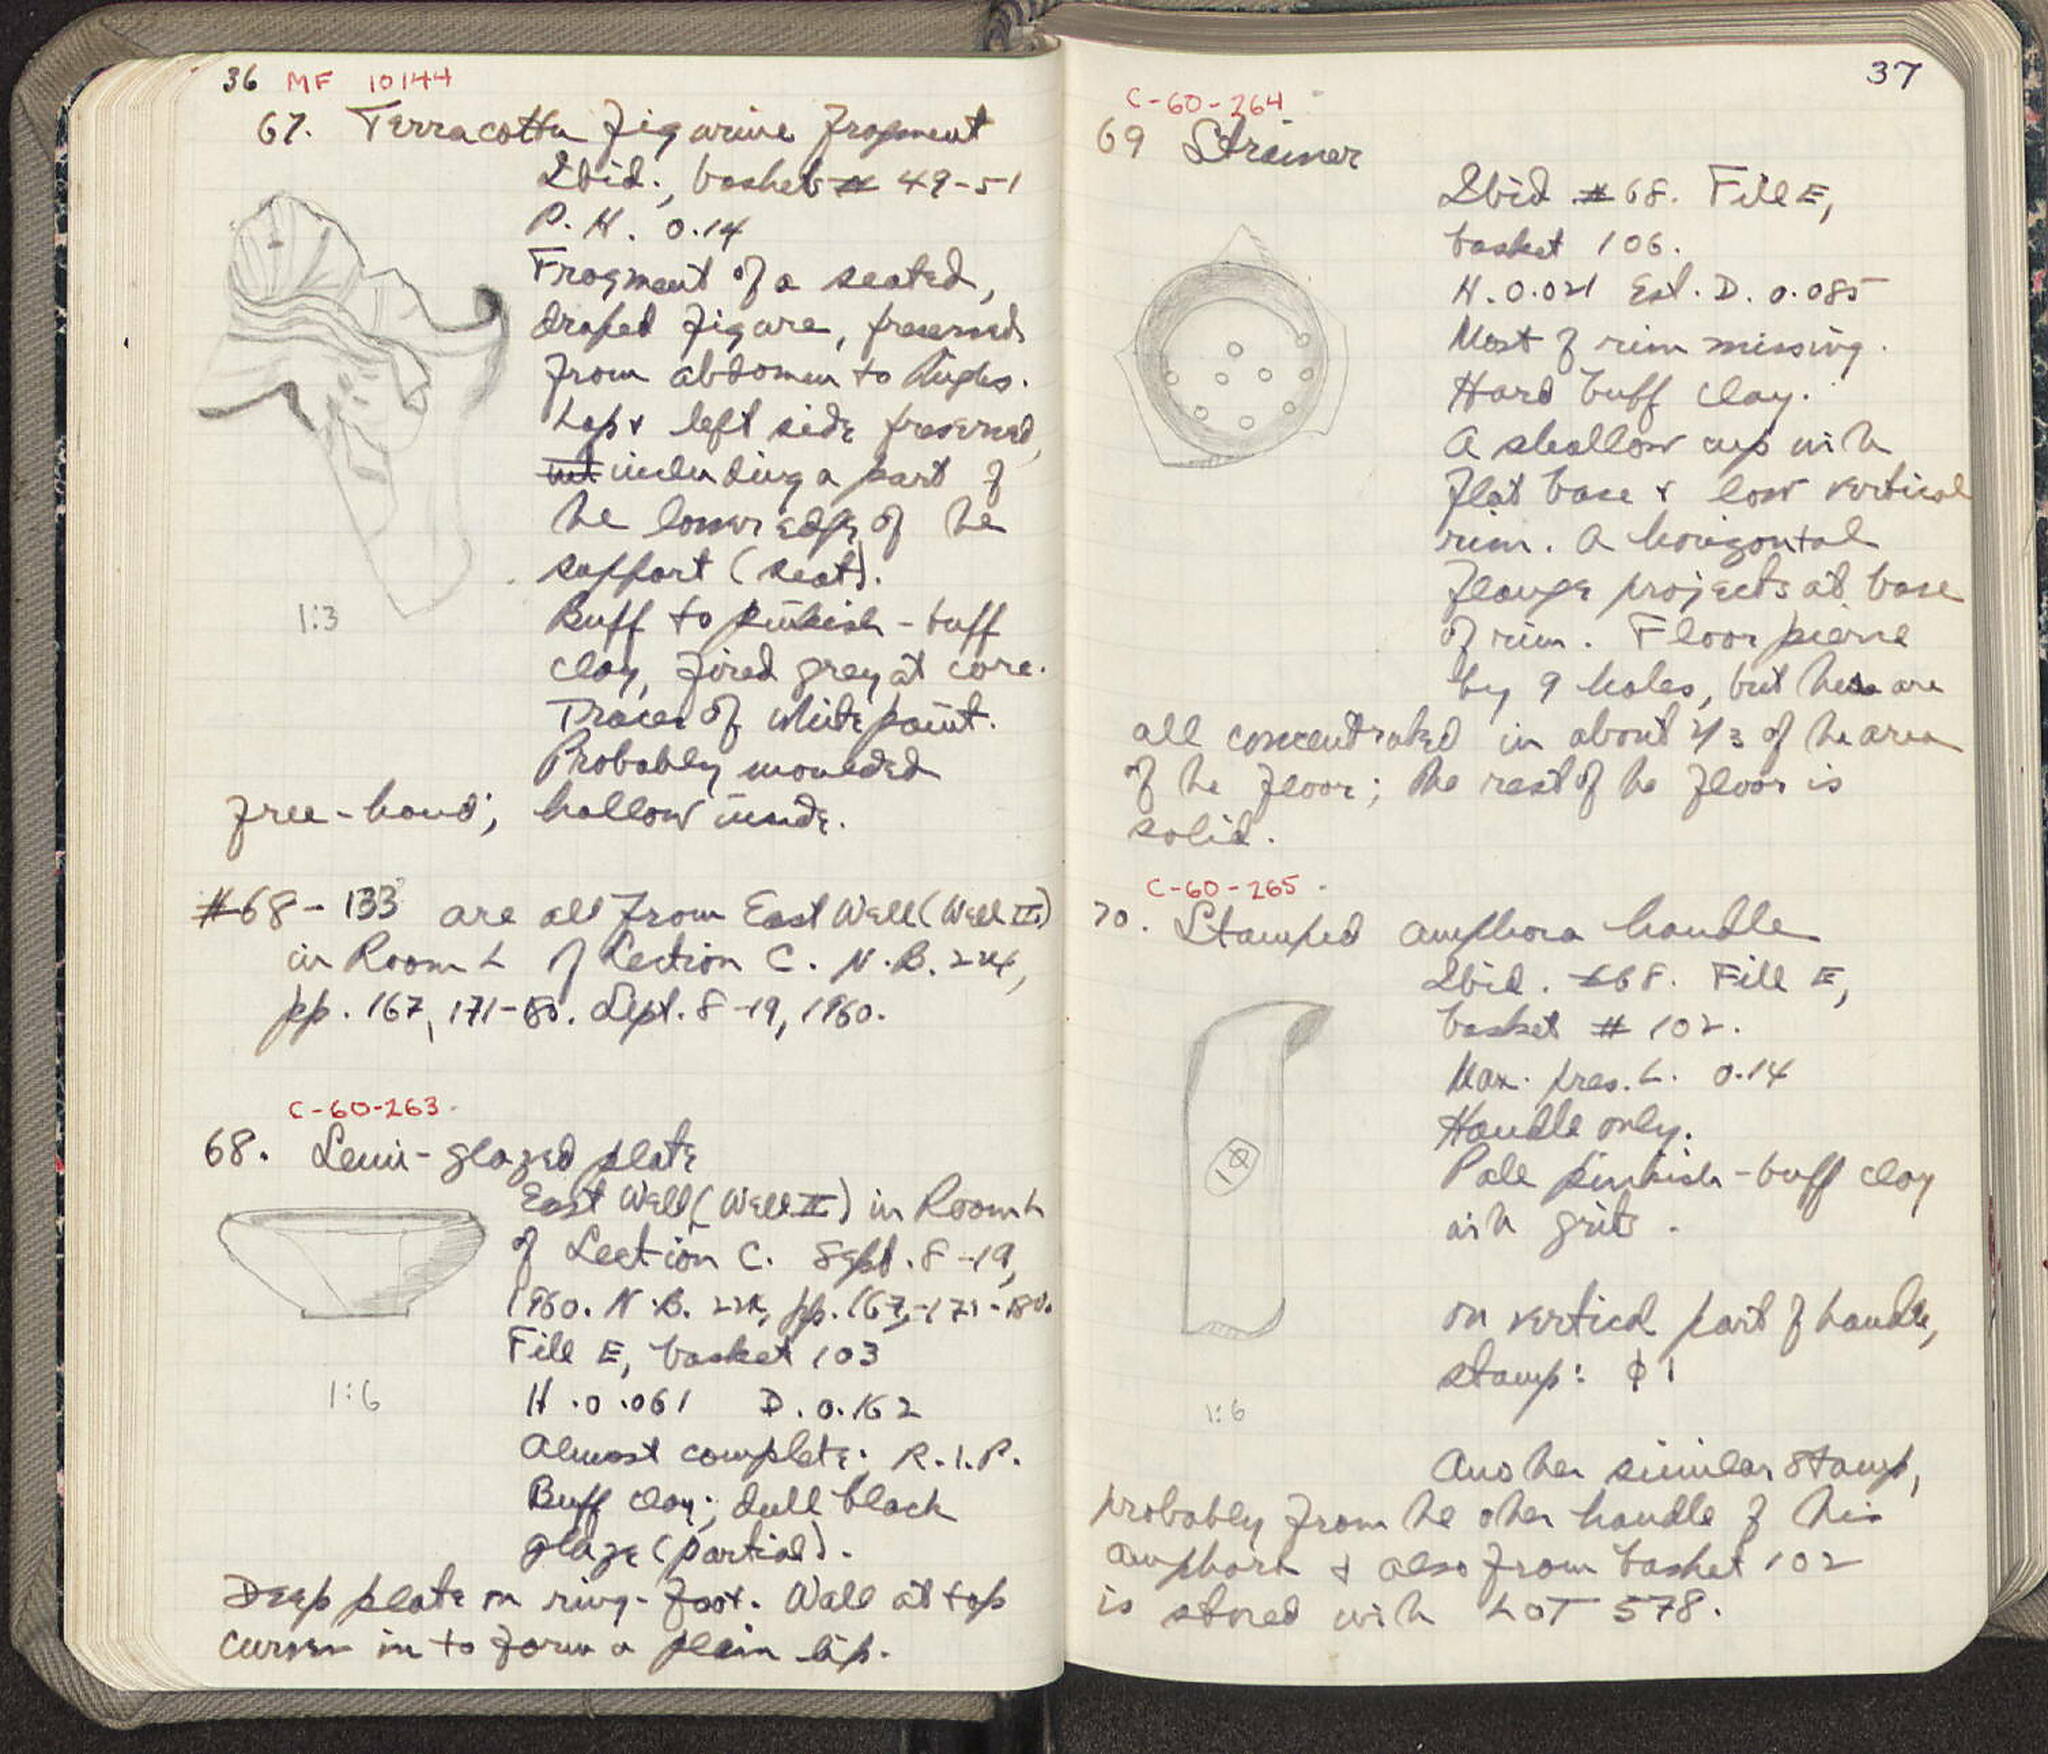 36 MF 10144
67. Terracotta figurine fragment
Ibid., baskets # 49-51
P.H. 0.14
Fragment of a seated,
draped figure, preserved
from abdomen to thighs.
Lap & left side preserved,
including a part of
the lower edge of the
support (seat).
1:3
Buff to pinkish-buff
clay, fired grey at core.
Traces of white paint.
Probably moulded
free-hand; hollow inside.
#68-133 are all from East Well (Well II)
in Room L of Section C. N.B. 224,
pp. 167, 171-180. Sept. 8-19, 1960.
C-60-263
68. Semi-glazed plate
East Well (Well II) in Room L
of Section C. Sept. 8-19,
1960. N.B. 224, pp. 167, 171-180.
Fill E, basket 103
1:6
H. 0.061 D. 0.162
Almost complete. R.I.P.
Buff clay; dull black
glaze (partial).
Deep plate on ring-foot. Wall at top
curves in to form a plain lip.
37
C-60-264
69 Strainer
Ibid #68. Fill E,
basket 106.
H. 0.021 Est. D. 0.085
Most of rim missing.
Hard buff clay.
A shallow cup with
flat base & low vertical
rim. A horizontal
flange projects at base
of rim. Floor pierced
by 9 holes, but these are
all concentrated in about 2/3 of the area
of the floor; the rest of the floor is
solid.
C-60-265
70. Stamped amphora handle
Ibid. #68. Fill E,
basket # 102.
Max. pres. L. 0.14
Handle only.
Pale pinkish-buff clay
with grits.
On vertical part of handle,
stamp: ϕ Ι
1:6
Another similar stamp,
probably from the other handle of this
amphora & also from basket 102
is stored with LOT 578.